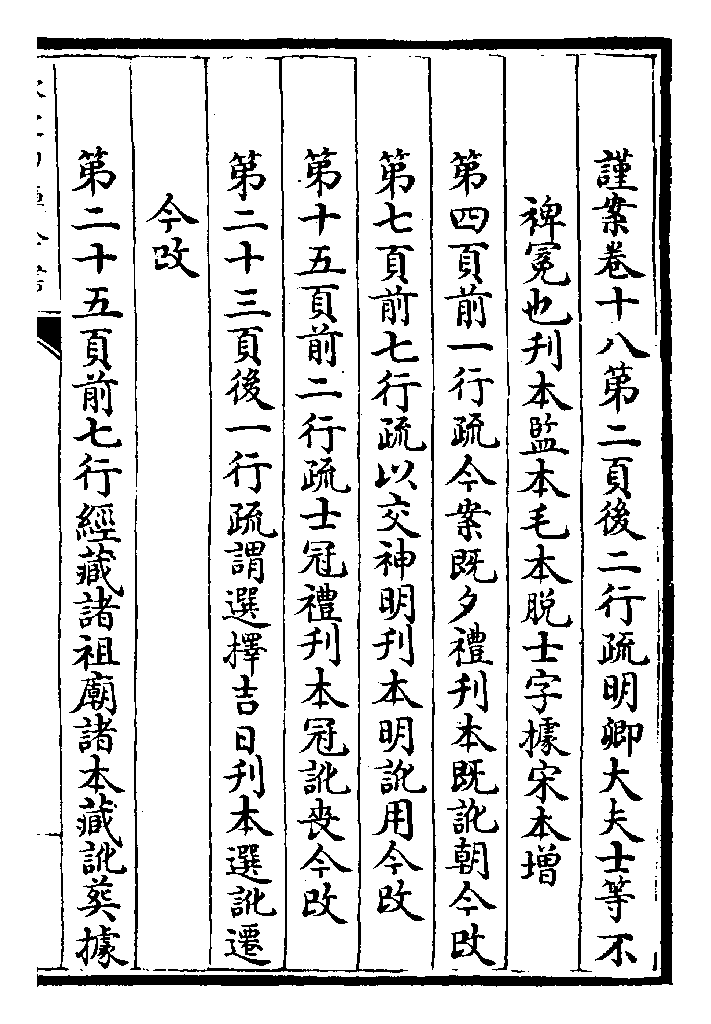 謹案卷十八第二頁後二行疏明卿大夫士等不
裨冕也刋本監本毛本脱士字據宋本增
第四頁前一行疏今案既夕禮刋本既訛朝今改
第七頁前七行疏以交神明刋本明訛用今改
第十五頁前二行疏士冠禮刋本冠訛喪今改
第二十三頁後一行疏謂選擇吉日刋本選訛遷
今改
第二十五頁前七行經藏諸祖廟諸本藏訛葬據